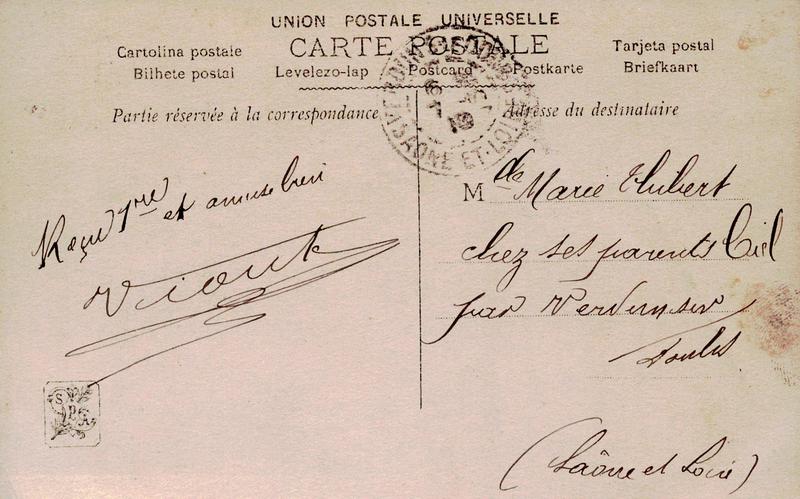 UNION POSTALE UNIVERSELLE
CARTE POSTALE
Cartolina postale
Bilhete postal
Levelezo-lap Postcard Postkarte
Tarjeta postal
Briefkaart
Partie réservée à la correspondance
Adresse du destinataire
SAONE-ET-LOIRE
Reçu 1ère et amuse bien
Viout
Mlle Marie Hubert
chez ses parents Ciel
par Verdun sur
Doubs
(Saône et Loire)